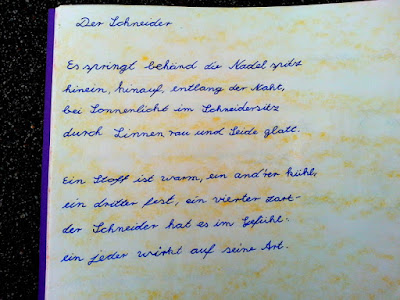 Der Schneider
Es springt behänd die Nadel spitz
hinein, hinauf, entlang der Naht,
bei Sonnenlicht im Schneidersitz
durch Linnen rau und Seide glatt.
Ein Stoff ist warm, ein and'rer kühl,
ein dritter fest, ein vierter zart-
der Schneider hat es im Gefühl:
ein jeder wirkt auf seine Art.